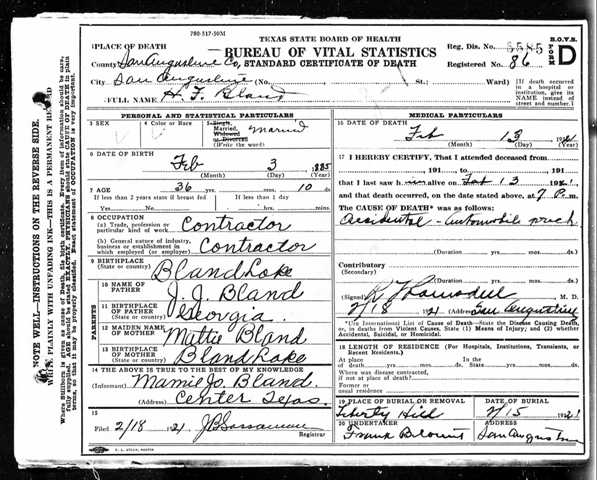 780-517-50M
TEXAS STATE BOARD OF HEALTH
BUREAU OF VITAL STATISTICS
STANDARD CERTIFICATE OF DEATH
Reg. Dis. No. 5585
Registered No. 86
B.O.V.S.
FORM
D
PLACE OF DEATH
County San Augustine Co
City San Augustine (No. St.; Ward)
[If death occurred in a hospital or institution, give its NAME instead of street and number.]
FULL NAME H. F. Bland
PERSONAL AND STATISTICAL PARTICULARS
3 SEX
4 Color or Race
5 Single, Married, Widowed or Divorced (Write the word) Married
6 DATE OF BIRTH
Feb 3 1885
(Month) (Day) (Year)
7 AGE 36 yrs. mos. 10 ds.
If less than 2 years state if breast fed
If less than 1 day
Yes No hrs. min.
8 OCCUPATION
(a) Trade, profession or particular kind of work Contractor
(b) General nature of industry, business or establishment in which employed (or employer) Contractor
9 BIRTHPLACE
(State or country) Bland Lake
PARENTS
10 NAME OF FATHER J. J. Bland
11 BIRTHPLACE OF FATHER (State or country) Georgia
12 MAIDEN NAME OF MOTHER Mattie Bland
13 BIRTHPLACE OF MOTHER (State or country) Bland Lake
14 THE ABOVE IS TRUE TO THE BEST OF MY KNOWLEDGE
(Informant) Mamie Jo. Bland
(Address) Center Texas.
15
Filed 2/18 1921
Registrar
MEDICAL PARTICULARS
16 DATE OF DEATH
Feb 13 1921
(Month) (Day) (Year)
17 I HEREBY CERTIFY, That I attended deceased from
191 , to 191
that I last saw h alive on Feb 13 1921
and that death occurred, on the date stated above, at 7 P.m.
The CAUSE OF DEATH* was as follows:
Accidental - Automobile wreck
(Duration yrs. mos. ds.
Contributory
(Secondary)
(Duration yrs. mos. ds.
(Signed) M. D.
2/18 1921 (Address) San Augustine
*Use International List of Cause of Death—State the Disease Causing Death, or, in deaths from Violent Causes, State (1) Means of Injury; and (2) whether Accidental, Suicidal, or Homicidal.
18 LENGTH OF RESIDENCE (For Hospitals, Institutions, Transients, or Recent Residents.)
At place of death yrs. mos. ds.
In the State yrs. mos. ds.
Where was disease contracted, if not at place of death?
Former or usual residence
19 PLACE OF BURIAL OR REMOVAL
Liberty Hill
DATE OF BURIAL
2/15 1921
20 UNDERTAKER
Frank Blount
ADDRESS
San Augustine
NOTE WELL—INSTRUCTIONS ON THE REVERSE SIDE.
WRITE PLAINLY WITH UNFADING INK—THIS IS A PERMANENT RECORD